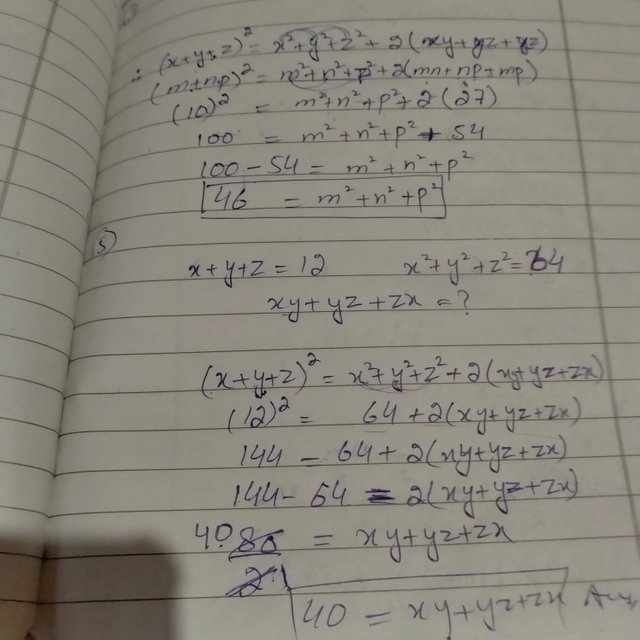 ∴ (x+y+z)² = x²+y²+z²+2(xy+yz+yz)
(m+np)² = m²+n²+p²+2(mn+np+mp)
(10)² = m²+n²+p²+2(27)
100 = m²+n²+p²+54
100-54 = m²+n²+p²
46 = m²+n²+p²
⑤
x+y+z=12 x²+y²+z²=64
xy+yz+zx=?
(x+y+z)² = x²+y²+z²+2(xy+yz+zx)
(12)² = 64+2(xy+yz+zx)
144 = 64+2(xy+yz+zx)
144-64 = 2(xy+yz+zx)
40 80/2 = xy+yz+zx
40 = xy+yz+zx Ans